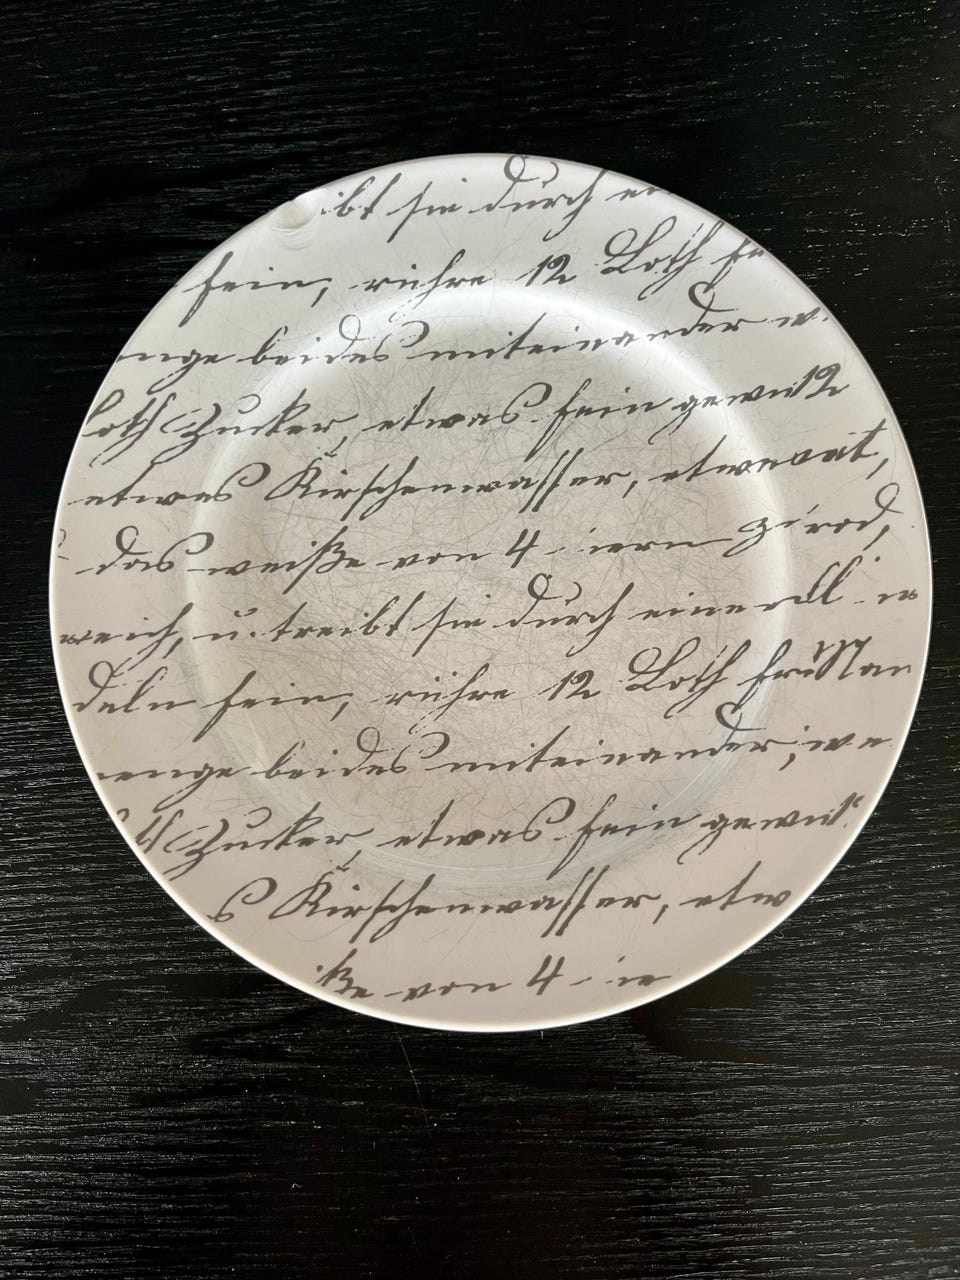 ibt sie durch ei
fein, rühre 12 Loth
enge beides miteinander w
Loth Zucker, etwas fein gewu12
etwas Kirschenwasser, etweoat,
das weiße von 4 iern
weich, u. treibt sie durch eine
deln fein, rühre 12 Loth
enge beides miteinander, we
Zucker, etwas fein gewu
s Kirschenwasser, etw
iße von 4 ie